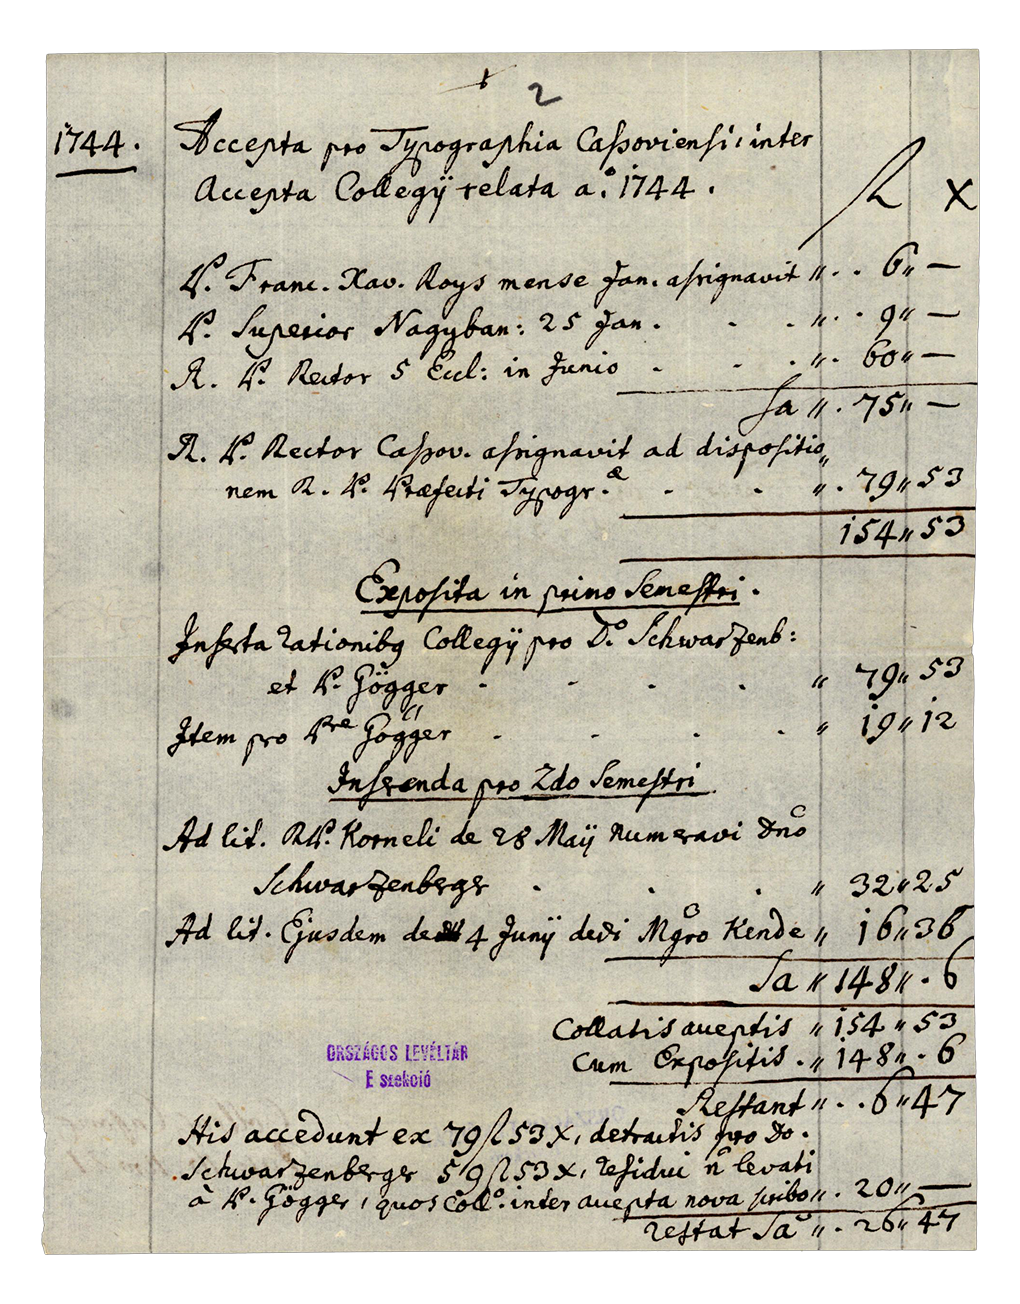 2
1744. Accepta pro Typographia Caßoviensi, inter
Accepta Collegÿ relata aº. 1744.
fl X
P. Franc. Xav. Roys mense Jan. assignavit „ . . 6 „ —
P. Superior Nagyban: 25 Jan. . . „ . . 9 „ —
R. P. Rector 5 Eccl: in Junio . . . „ . 60 „ —
Sa „ . 75 „ —
R. P. Rector Caßov. assignavit ad dispositio„
nem R. P. Præfecti Typogr.æ . . „ . 79 „ 53
154 „ 53
Exposita in primo Semestri.
Inserta rationibq Collegÿ pro D.º Schwarzenb:
et P. Gögger . . . . „ 79 „ 53
Item pro Pre Gögger . . . . „ 19 „ 12
Inserenda pro 2do Semestri
Ad lit. RP. Korneli de 28 Maÿ numeravi dnō
Schwarzenberger . . . „ 32 „ 25
Ad lit. Ejusdem de 4 Junÿ dedi Mgro Kende „ 16 „ 36
Sa „ 148 „ . 6
Collatis acceptis „ 154 „ 53
Cum Expositis . „ 148 „ . 6
Restant „ . . 6 „ 47
His accedunt ex 79 fl 53 X, detractis pro Do.
Schwarzenberger 59 fl 53 X, residui nō levati
à P. Gögger, quos Collº. inter accepta nova scribo „ . 20 „ —
restat Sa „ . 26 „ 47
ORSZÁGOS LEVÉLTÁR
E szekció